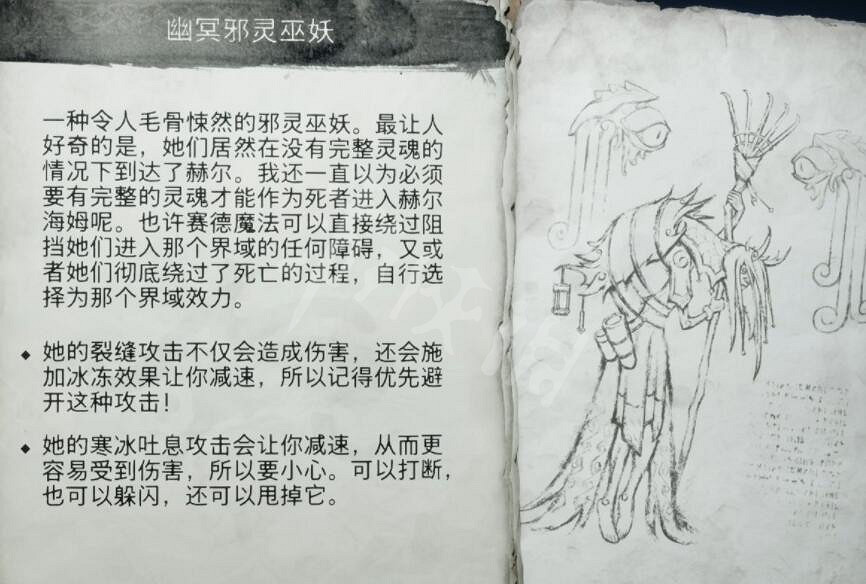 幽冥邪灵巫妖
一种令人毛骨悚然的邪灵巫妖。最让人
好奇的是，她们居然在没有完整灵魂的
情况下到达了赫尔。我还一直以为必须
要有完整的灵魂才能作为死者进入赫尔
海姆呢。也许赛德魔法可以直接绕过阻
挡她们进入那个界域的任何障碍，又或
者她们彻底绕过了死亡的过程，自行选
择为那个界域效力。
◆ 她的裂缝攻击不仅会造成伤害，还会施
加冰冻效果让你减速，所以记得优先避
开这种攻击！
◆ 她的寒冰吐息攻击会让你减速，从而更
容易受到伤害，所以要小心。可以打断，
也可以躲闪，还可以甩掉它。